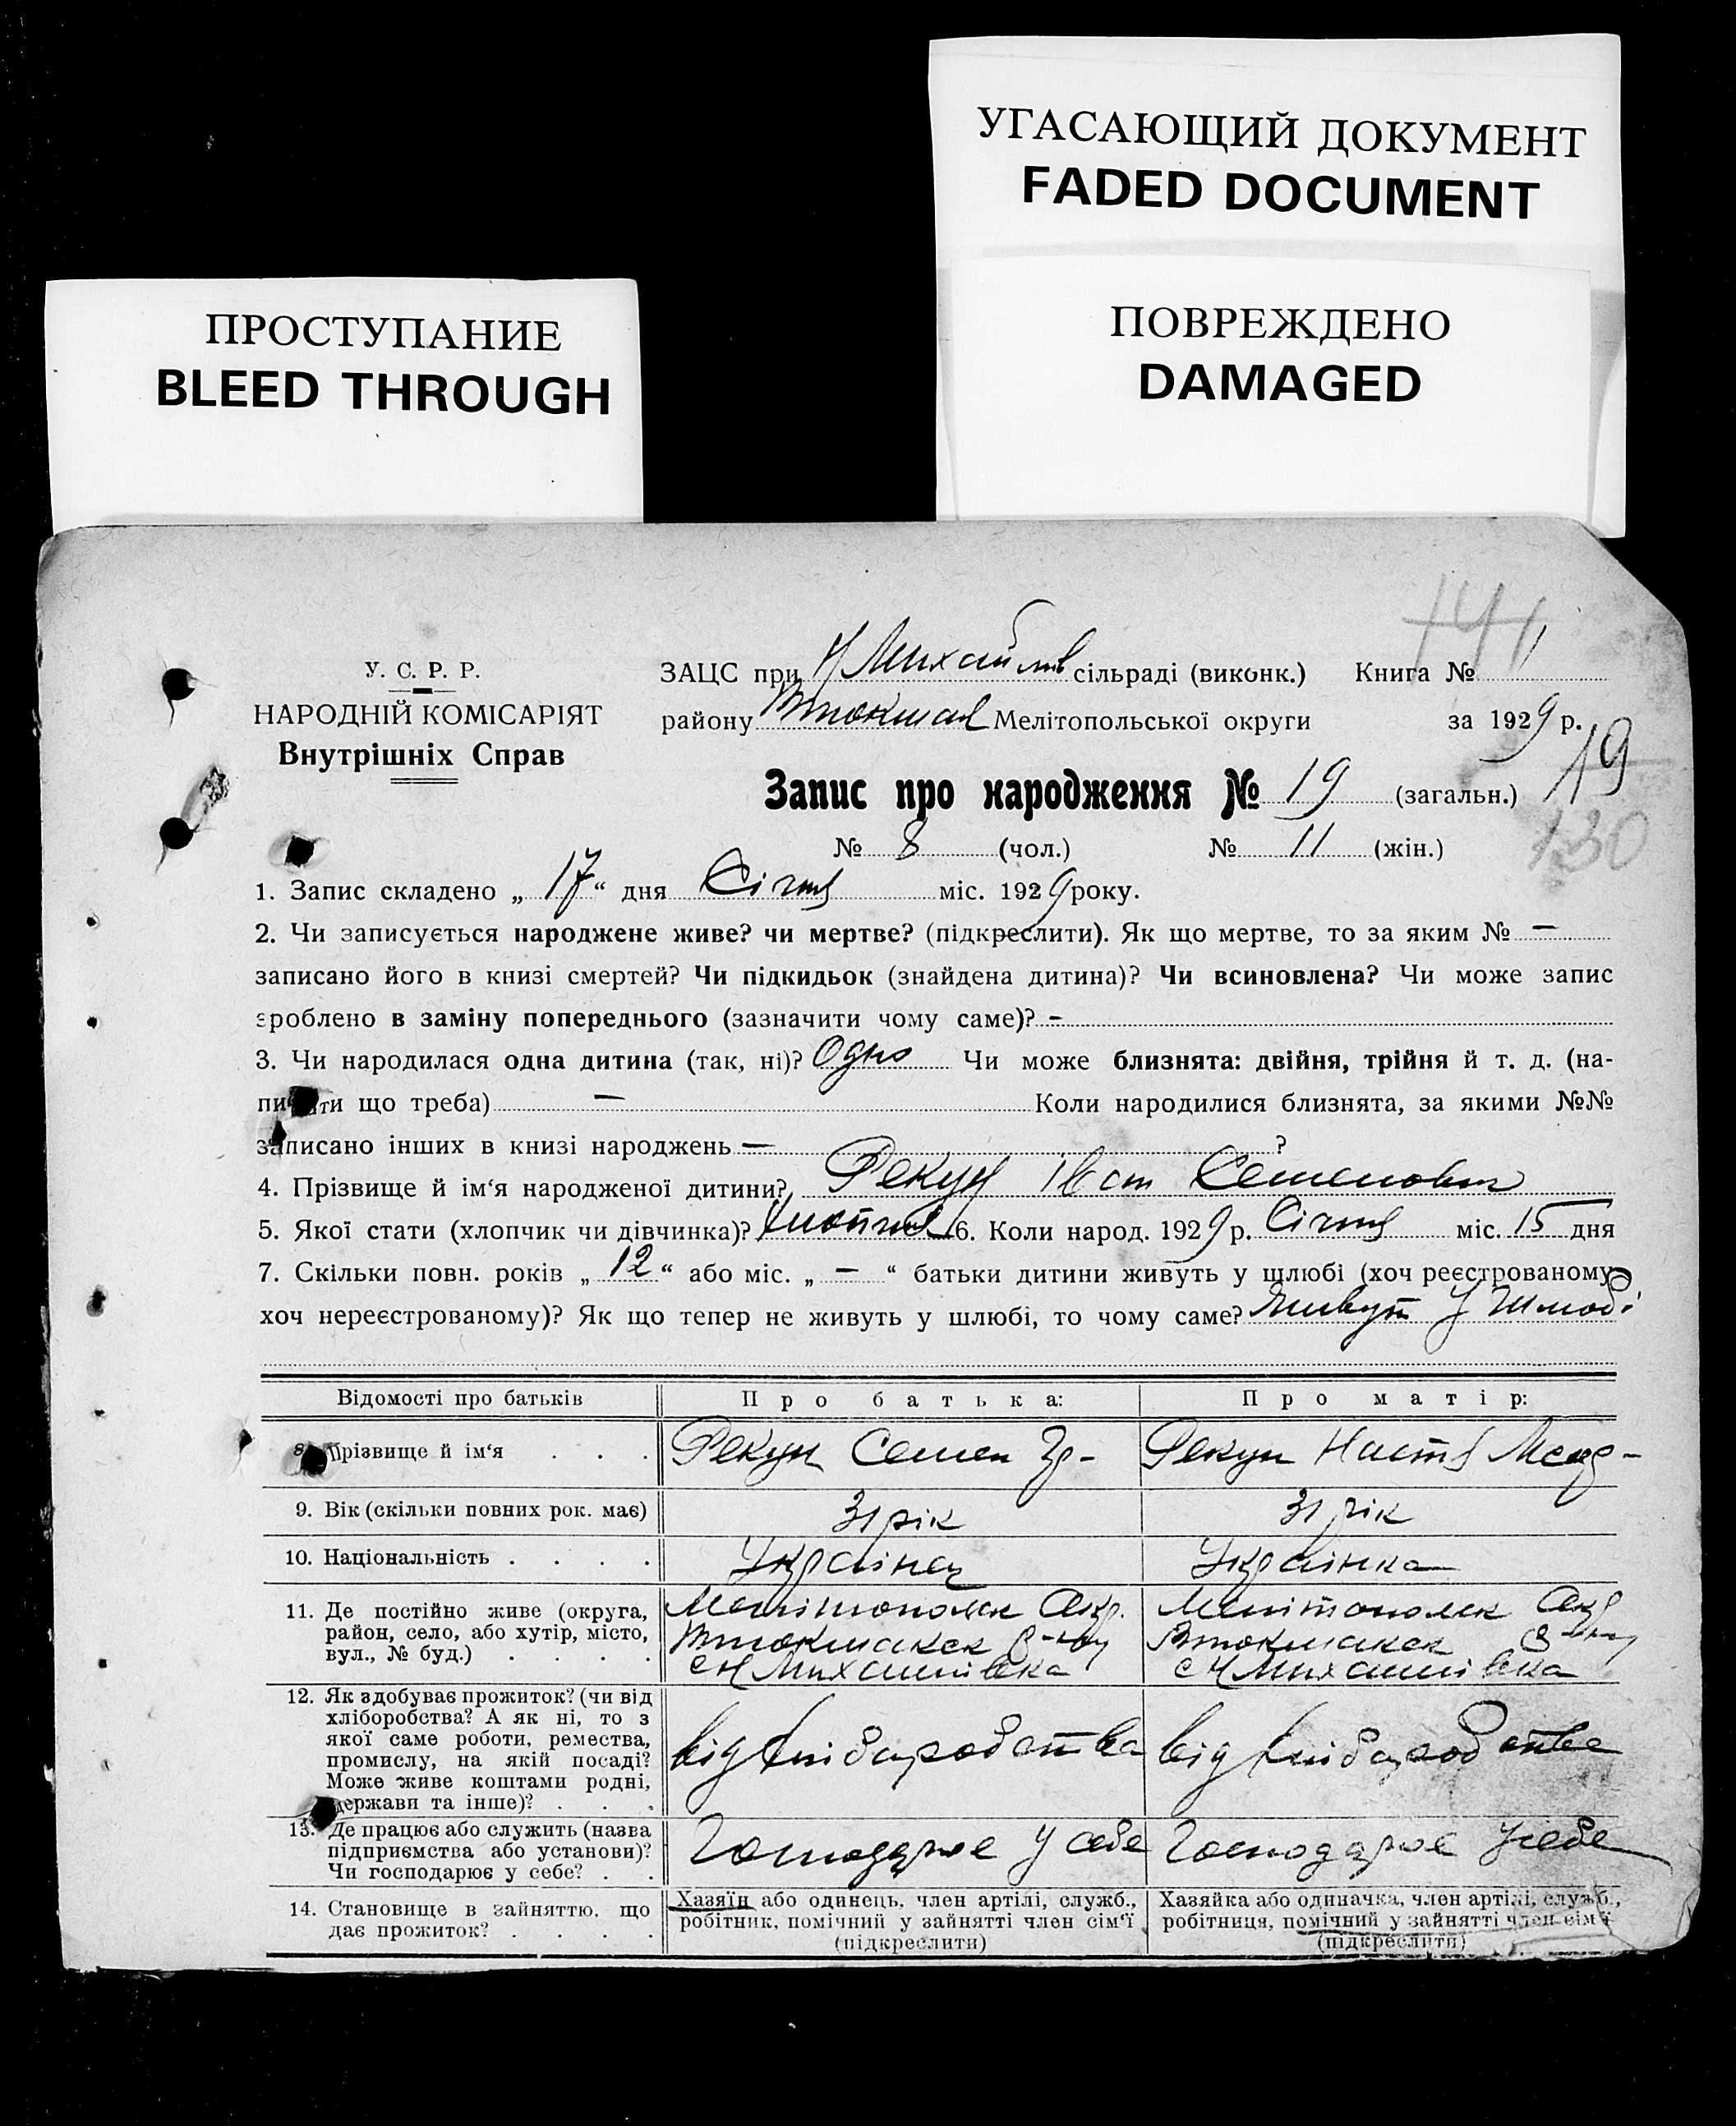 УГАСАЮЩИЙ ДОКУМЕНТ
FADED DOCUMENT
ПРОСТУПАНИЕ
BLEED THROUGH
ПОВРЕЖДЕНО
DAMAGED
У. С. Р. Р.
НАРОДНІЙ КОМІСАРІЯТ
Внутрішніх Справ
ЗАЦС при Н Михайлів сільраді (виконк.) Книга №
району Втокмак Мелітопольської округи за 1929 р.
19
Запис про народження № 19 (загальн.)
130
№ 8 (чол.) № 11 (жін.)
1. Запис складено „17“ дня Січня міс. 1929 року.
2. Чи записується народжене живе? чи мертве? (підкреслити). Як що мертве, то за яким № —
записано його в книзі смертей? Чи підкидьок (знайдена дитина)? Чи всиновлена? Чи може запис
зроблено в заміну попереднього (зазначити чому саме)? -
3. Чи народилася одна дитина (так, ні)? Одно Чи може близнята: двійня, трійня й т. д. (на-
писати що треба) — Коли народилися близнята, за якими №№
записано інших в книзі народжень — ?
4. Прізвище й ім‘я народженої дитини? Рекун Семенович
5. Якої стати (хлопчик чи дівчинка)? Хлопчик 6. Коли народ. 1929 р. Січня міс. 15 дня
7. Скільки повн. років „12“ або міс. „—“ батьки дитини живуть у шлюбі (хоч реєстрованому,
хоч нереєстрованому)? Як що тепер не живуть у шлюбі, то чому саме? Живут у шлюбі
Відомості про батьків Про батька: Про матір:
8. Прізвище й ім‘я . . . Рекун Семен Гр- Рекун Настя
9. Вік (скільки повних рок. має) 31 рік 31 рік
10. Національність . . . . Українец Українка
11. Де постійно живе (округа,
район, село, або хутір, місто,
вул., № буд.) . . . .
Мелітополек Окр. Мелітополек Окр
Втокмакск р-ну Втокмакск р-ну
с Н Михайлівка с Н Михайлівка
12. Як здобуває прожиток? (чи від
хліборобства? А як ні, то з
якої саме роботи, ремества,
промислу, на якій посаді?
Може живе коштами родні,
держави та інше)? . . .
від хлібаробства від хлібаробства
13. Де працює або служить (назва
підприємства або установи)?
Чи господарює у себе? . .
Господарює у себе Господарює у себе
14. Становище в зайняттю, що
дає прожиток? . . . .
Хазяїн або одинець, член артілі, служб.,
робітник, помічний у зайнятті член сім‘ї
(підкреслити)
Хазяйка або одиначка, член артілі, служб.,
робітниця, помічний у зайнятті член сім‘ї
(підкреслити)